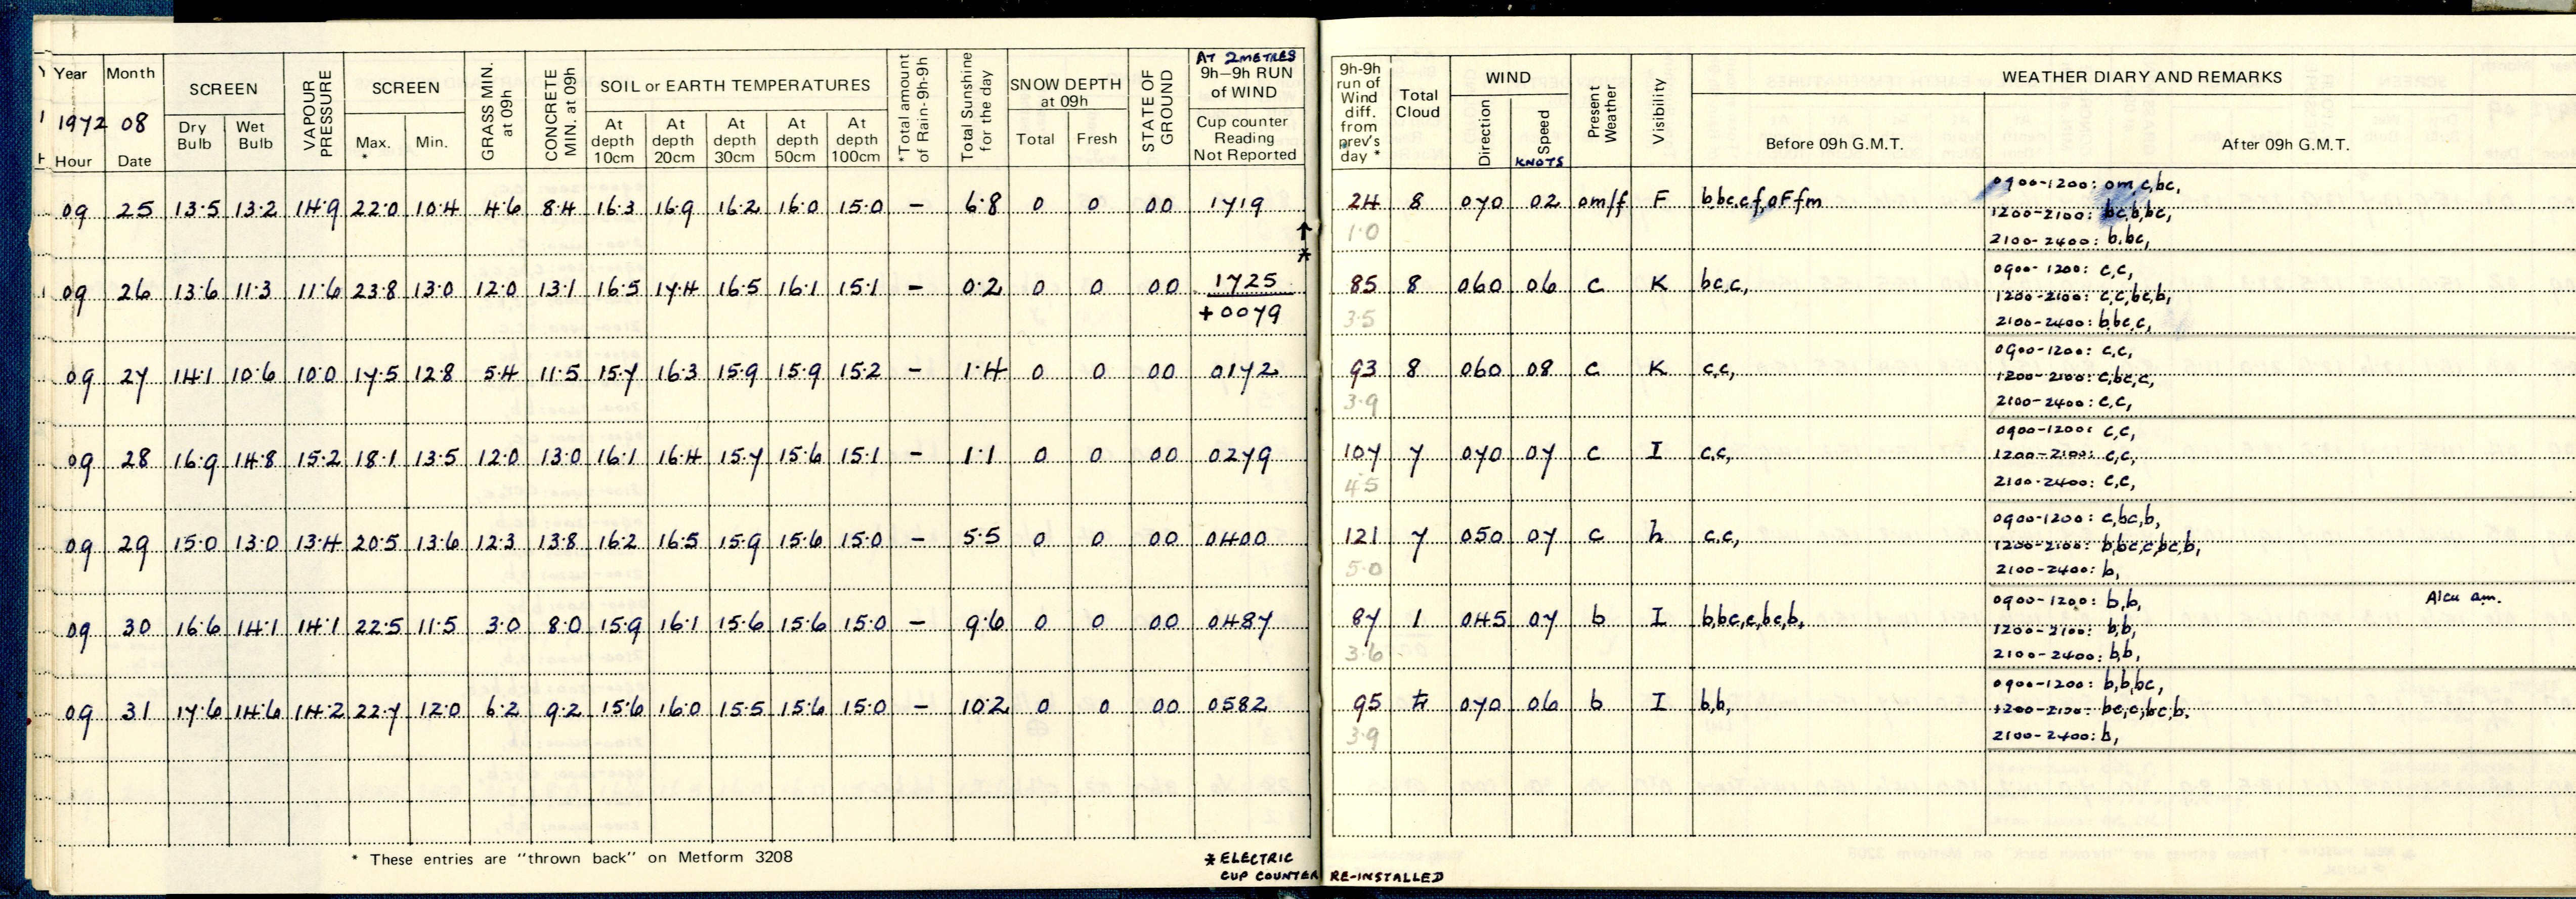 Year Month SCREEN VAPOUR PRESSURE SCREEN GRASS MIN. at 09h CONCRETE MIN. at 09h SOIL or EARTH TEMPERATURES *Total amount of Rain-9h-9h Total Sunshine for the day SNOW DEPTH at 09h STATE OF GROUND AT 2 METRES 9h-9h RUN of WIND
1972 08 Dry Bulb Wet Bulb Max. * Min. At depth 10cm At depth 20cm At depth 30cm At depth 50cm At depth 100cm Total Fresh Cup counter Reading Not Reported
Hour Date
9h-9h run of Wind diff. from prev's day * Total Cloud WIND Direction Speed KNOTS Present Weather Visibility WEATHER DIARY AND REMARKS
Before 09h G.M.T. After 09h G.M.T.
09 25 13.5 13.2 14.9 22.0 10.4 4.6 8.4 16.3 16.9 16.2 16.0 15.0 – 6.8 0 0 00 1719 24 8 070 02 om/f F b,bc,c,f,oFfm 0900-1200: om,c,bc,
↑ * 1.0 1200-2100: bc,b,bc,
2100-2400: b,bc,
09 26 13.6 11.3 11.6 23.8 13.0 12.0 13.1 16.5 17.4 16.5 16.1 15.1 – 0.2 0 0 00 1725 85 8 060 06 c K bc,c, 0900-1200: c,c,
+0079 3.5 1200-2100: c,c,bc,b,
2100-2400: b,bc,c,
09 27 14.1 10.6 10.0 17.5 12.8 5.4 11.5 15.7 16.3 15.9 15.9 15.2 – 1.4 0 0 00 0172 93 8 060 08 c K c,c, 0900-1200: c,c,
3.9 1200-2100: c,bc,c,
2100-2400: c,c,
09 28 16.9 14.8 15.2 18.1 13.5 12.0 13.0 16.1 16.4 15.7 15.6 15.1 – 1.1 0 0 00 0279 107 7 070 07 c I c,c, 0900-1200: c,c,
4.5 1200-2100: c,c,
2100-2400: c,c,
09 29 15.0 13.0 13.4 20.5 13.6 12.3 13.8 16.2 16.5 15.9 15.6 15.0 – 5.5 0 0 00 0400 121 7 050 07 c h c,c, 0900-1200: c,bc,b,
5.0 1200-2100: b,bc,c,bc,b,
2100-2400: b,
09 30 16.6 14.1 14.1 22.5 11.5 3.0 8.0 15.9 16.1 15.6 15.6 15.0 – 9.6 0 0 00 0487 87 1 045 07 b I b,bc,c,bc,b, 0900-1200: b,b, Alcu am.
3.6 1200-2100: b,b,
2100-2400: b,b,
09 31 17.6 14.6 14.2 22.7 12.0 6.2 9.2 15.6 16.0 15.5 15.6 15.0 – 10.2 0 0 00 0582 95 070 06 b I b,b, 0900-1200: b,b,bc,
3.9 1200-2100: bc,c,bc,b.
2100-2400: b,
* These entries are "thrown back" on Metform 3208
* ELECTRIC
CUP COUNTER RE-INSTALLED